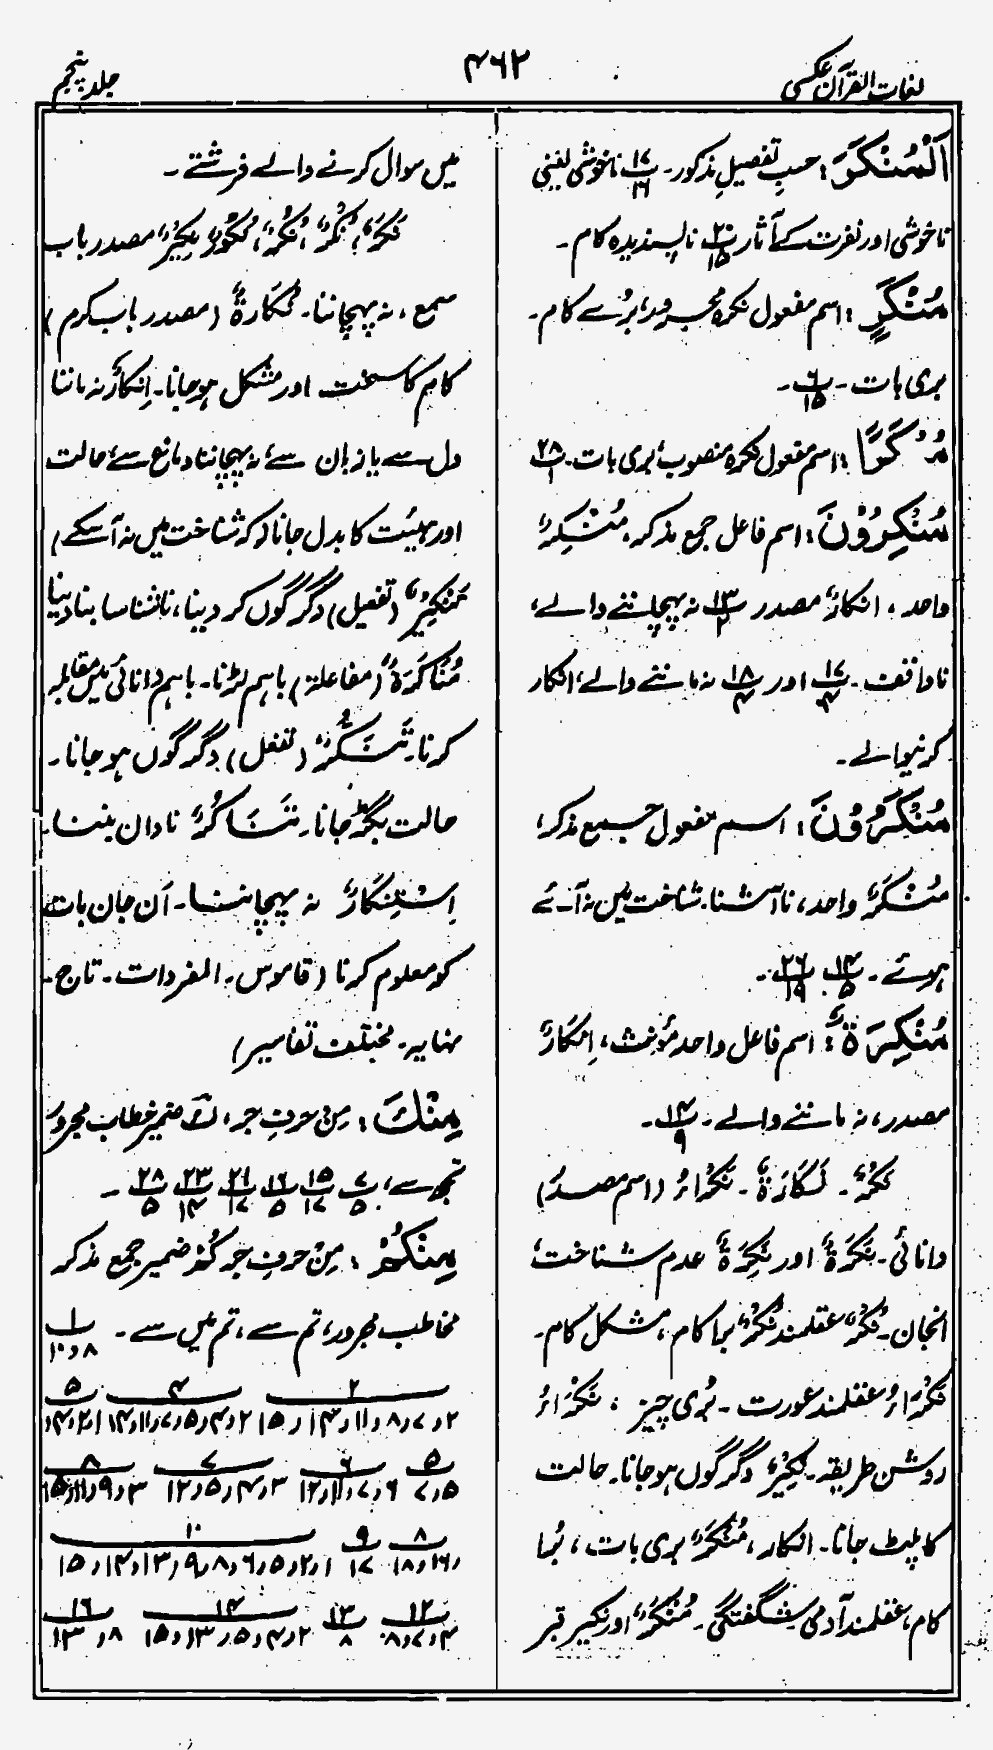 لغات القرآن عکسی
۴۶۲
جلد پنجم
اَلْمُنْكَرَ: حسبِ تفصیلِ مذکور۔ پ ۱۷/۱۶ ناخوشی یعنی
ناخوشی اور نفرت کے آثار پ ۲۰/۱۵، ناپسندیدہ کام۔
مُنْكَرٍ: اسم مفعول نکرہ مجرور، بُرے کام۔
بری بات۔ پ ۶/۱۵۔
مُنْكَرًا: اسم مفعول نکرہ منصوب، بری بات۔ پ ۲۸/۱
مُنْكِرُوْنَ: اسم فاعل جمع مذکر، مُنْكِرٌ
واحد، انکارٌ مصدر پ ۱۳/۲ نہ پہچاننے والے،
ناواقف۔ پ ۱۷/۴ اور پ ۱۸/۴ نہ ماننے والے، انکار
کرنیوالے۔
مُنْكَرُوْنَ: اسم مفعول جمع مذکر،
مُنْكَرٌ واحد، ناآشنا۔ شناخت میں نہ آئے
ہوئے۔ پ ۱۴/۵ پ ۲۶/۱۹۔
مُنْكِرَةٌ: اسم فاعل واحد مؤنث، اِنْكَارٌ
مصدر، نہ ماننے والے۔ پ ۱۴/۹۔
نُكْرٌ۔ نَكَارَةٌ۔ نَكْرَاءُ (اسم مصدر)
دانائی۔ نَكَرَةٌ اور نَكِرَةٌ عدم شناخت،
انجان۔ نُكْرٌ عقلمند نُكُرٌ برا کام، مشکل کام۔
نَكْرَاءُ عقلمند عورت۔ بُری چیز، نَكْرَاءُ
روشن طریقہ۔ نَكِيْرٌ دگرگوں ہوجانا۔ حالت
کا پلٹ جانا۔ انکار، مُنْكَرٌ بری بات، بُرا
کام، عقلمند آدمی شگفتگی۔ مُنْكَرٌ اور نکیر قبر
میں سوال کرنے والے فرشتے۔
نَكَرٌ، نُكُرٌ، نُكْرٌ، نُكُوْرٌ نَكِيْرٌ مصدر باب
سمع، نہ پہچاننا۔ نَكَارَةٌ (مصدر باب کرم)
کام کا سخت اور مشکل ہوجانا۔ اِنكارٌ نہ ماننا
دل سے یا زبان سے، نہ پہچاننا دمانع سے، حالت
اور ہیئت کا بدل جانا (کہ شناخت میں نہ آسکے)
تَنْكِيْرٌ (تفعیل) دگرگوں کر دینا، ناشناسا بنا دینا
مُنَاكَرَةٌ (مفاعلۃ) باہم لڑنا۔ باہم دانائی میں مقابلہ
کرنا۔ تَنَكُّرٌ (تفعل) دگرگوں ہوجانا۔
حالت بگڑ جانا۔ تَنَاكُرٌ نادان بننا۔
اِسْتِنْكَارٌ نہ پہچاننا۔ اَن جان بات
کو معلوم کرنا (قاموس۔ المفردات۔ تاج۔
نہایہ۔ مختلف تفاسیر)
مِنْكَ: مِن حرفِ جر، كَ ضمیر خطاب مجرور
تجھ سے، پ ۷/۵ پ ۱۵/۱۷ پ ۱۶/۵ پ ۲۱/۱۷ پ ۲۳/۱۴ پ ۲۸/۵۔
مِنْكُمْ: مِنْ حرفِ جر كُمْ ضمیر جمع مذکر
مخاطب مجرور، تم سے، تم میں سے۔ پ ۱/۸،۱۰
۲/۲،۷،۸،۱۱،۱۴،۱۵ ۴/۲،۴،۵،۷،۱۱،۱۴ ۵/۱،۲،۴
۵/۵،۷ ۶/۶،۷،۱۱،۱۲ ۷/۳،۴،۵،۱۲ ۸/۳،۹،۱۱،۱۵
۸/۱۶،۱۸ ۹/۱۷ ۱۰/۱،۲،۵،۶،۸،۹،۱۳،۱۴،۱۵
۱۲/۴،۷،۸ ۱۳/۸ ۱۴/۲،۴،۵،۱۳،۱۵ ۱۶/۸،۱۳